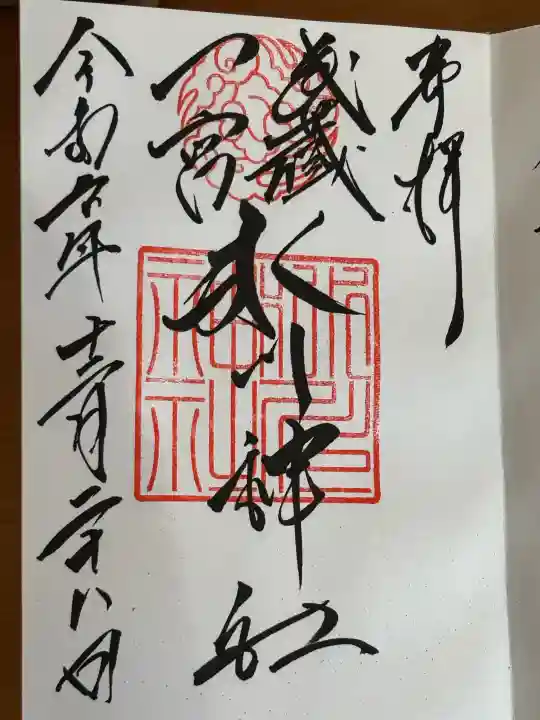 奉拝
武蔵
一宮
氷川神社
令和六年十二月二十八日
氷川神社